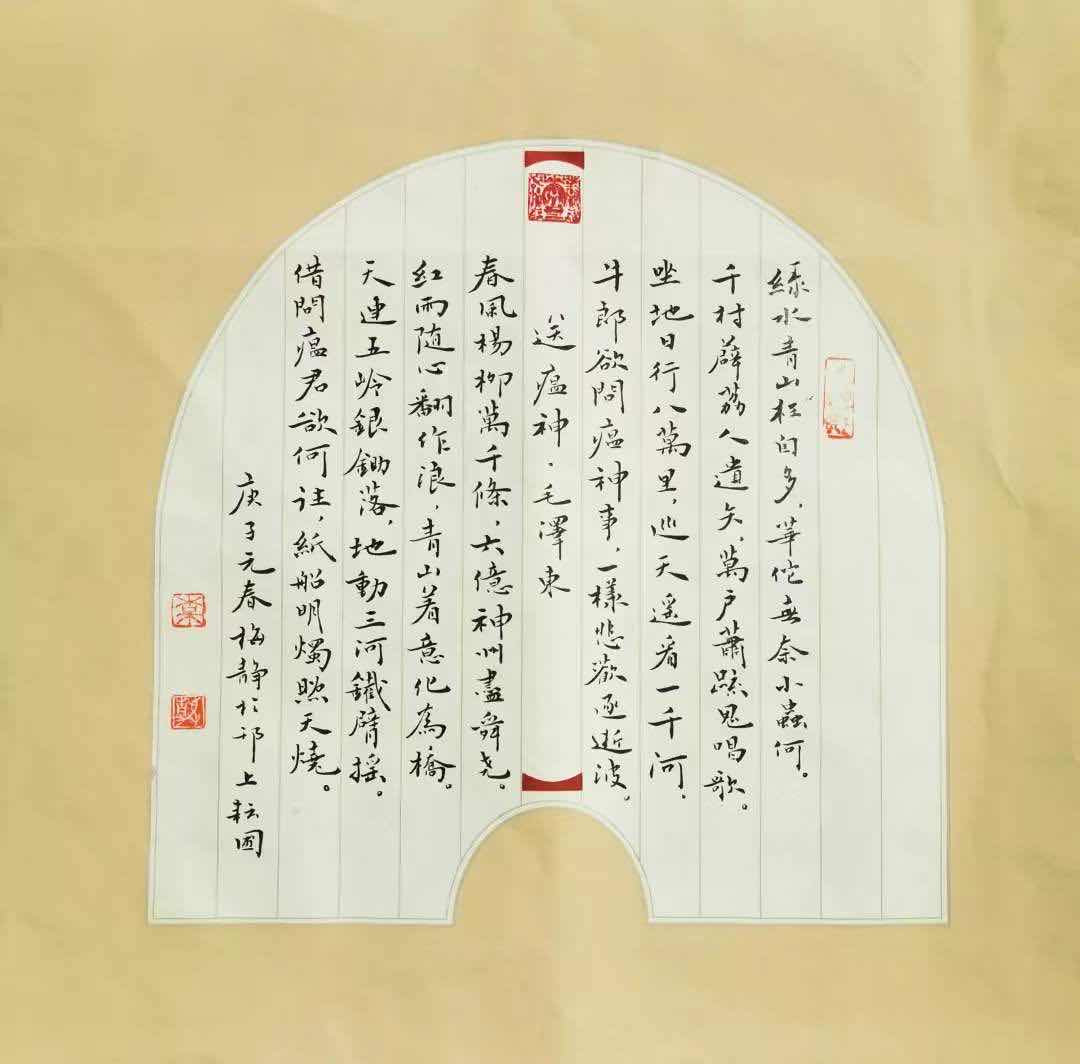 綠水青山枉自多,華佗無奈小蟲何。
千村薜荔人遺矢,萬戶蕭疏鬼唱歌。
坐地日行八萬里,巡天遥看一千河。
牛郎欲問瘟神事,一樣悲歡逐逝波。
送瘟神·毛澤東
春風楊柳萬千條,六億神州盡舜堯。
紅雨随心翻作浪,青山着意化為橋。
天連五岭銀鋤落,地動三河鐵臂摇。
借問瘟君欲何往,紙船明燭照天燒。
庚子元春梅靜於邗上耘圃